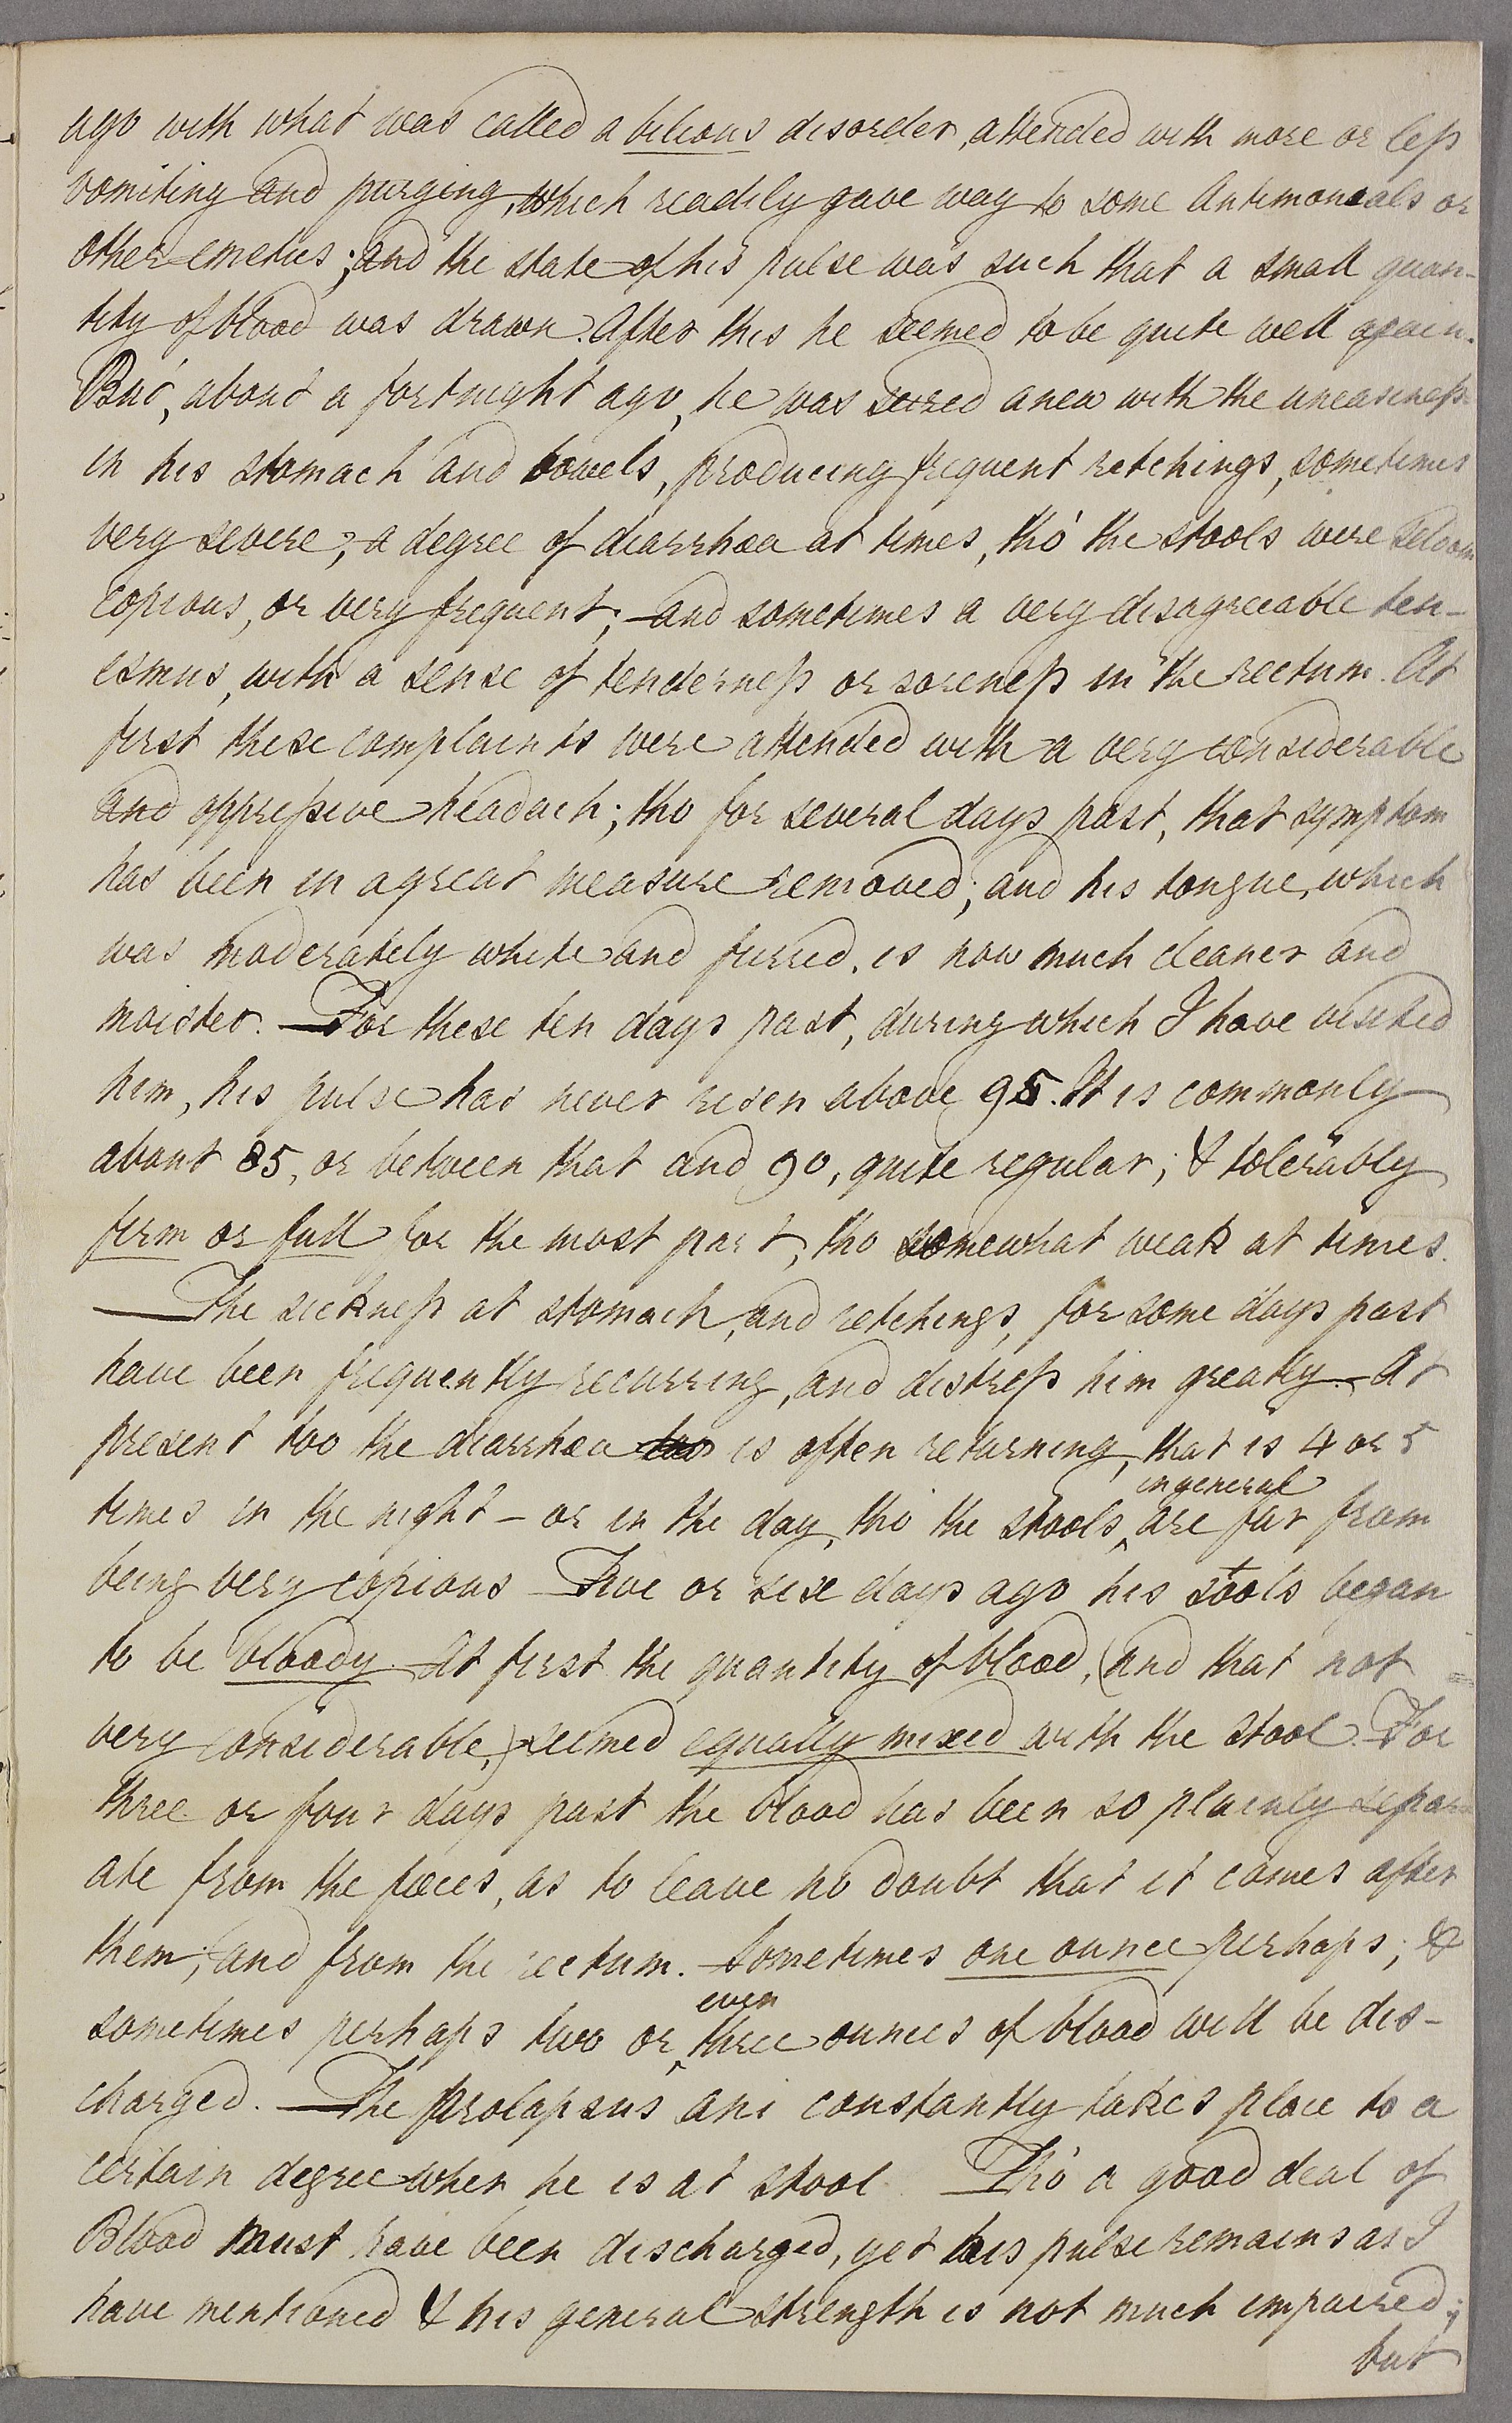 ago with what was called a bilious disorder, attended with more or less
vomiting and purging, which readily gave way to some Antimonials or
other emetics; and the state of his pulse was such that a small quan-
tity of blood was drawn. After this he seemed to be quite well again.
But, about a fortnight ago, he was seized anew with the uneasiness
in his stomach and bowels, producing frequent retchings, sometimes
very severe; a degree of diarrhœa at times, tho' the stools were seldom
copious, or very frequent; and sometimes a very disagreeable ten-
esmus, with a sense of tenderness or soreness in the rectum. At
first these complaints were attended with a very considerable
and oppressive headach; tho for several days past, that symptom
has been in a great measure removed; and his tongue, which
was moderately white and furred, is now much cleaner and
moister. — For these ten days past, during which I have visited
him, his pulse has never risen above 95. It is commonly
about 85, or between that and 90, quite regular; & tolerably
firm or full for the most part, tho somewhat weak at times.
— The sickness at stomach, and retchings, for some days past
have been frequently recurring, and distress him greatly. — At
present too the diarrhœa too is often returning, that is 4 or 5
times in the night - or in the day, tho' the stools, in general are far from
being very copious Five or six days ago his stools began
to be bloody. At first the quantity of blood, (and that not
very considerable,) seemed equally mixed with the stool. For
three or four days past the blood has been so plainly separ-
ate from the fœces, as to leave no doubt that it comes after
them; and from the rectum. Sometimes one ounce perhaps; &
sometimes perhaps two or even three ounces of blood will be dis-
charged. — The prolapsus ani constantly takes place to a
certain degree when he is at stool. Tho' a good deal of
Blood must have been discharged, yet his pulse remains as I
have mentioned & his general strength is not much impaired;
but